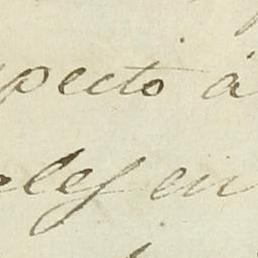 pecto á
les en